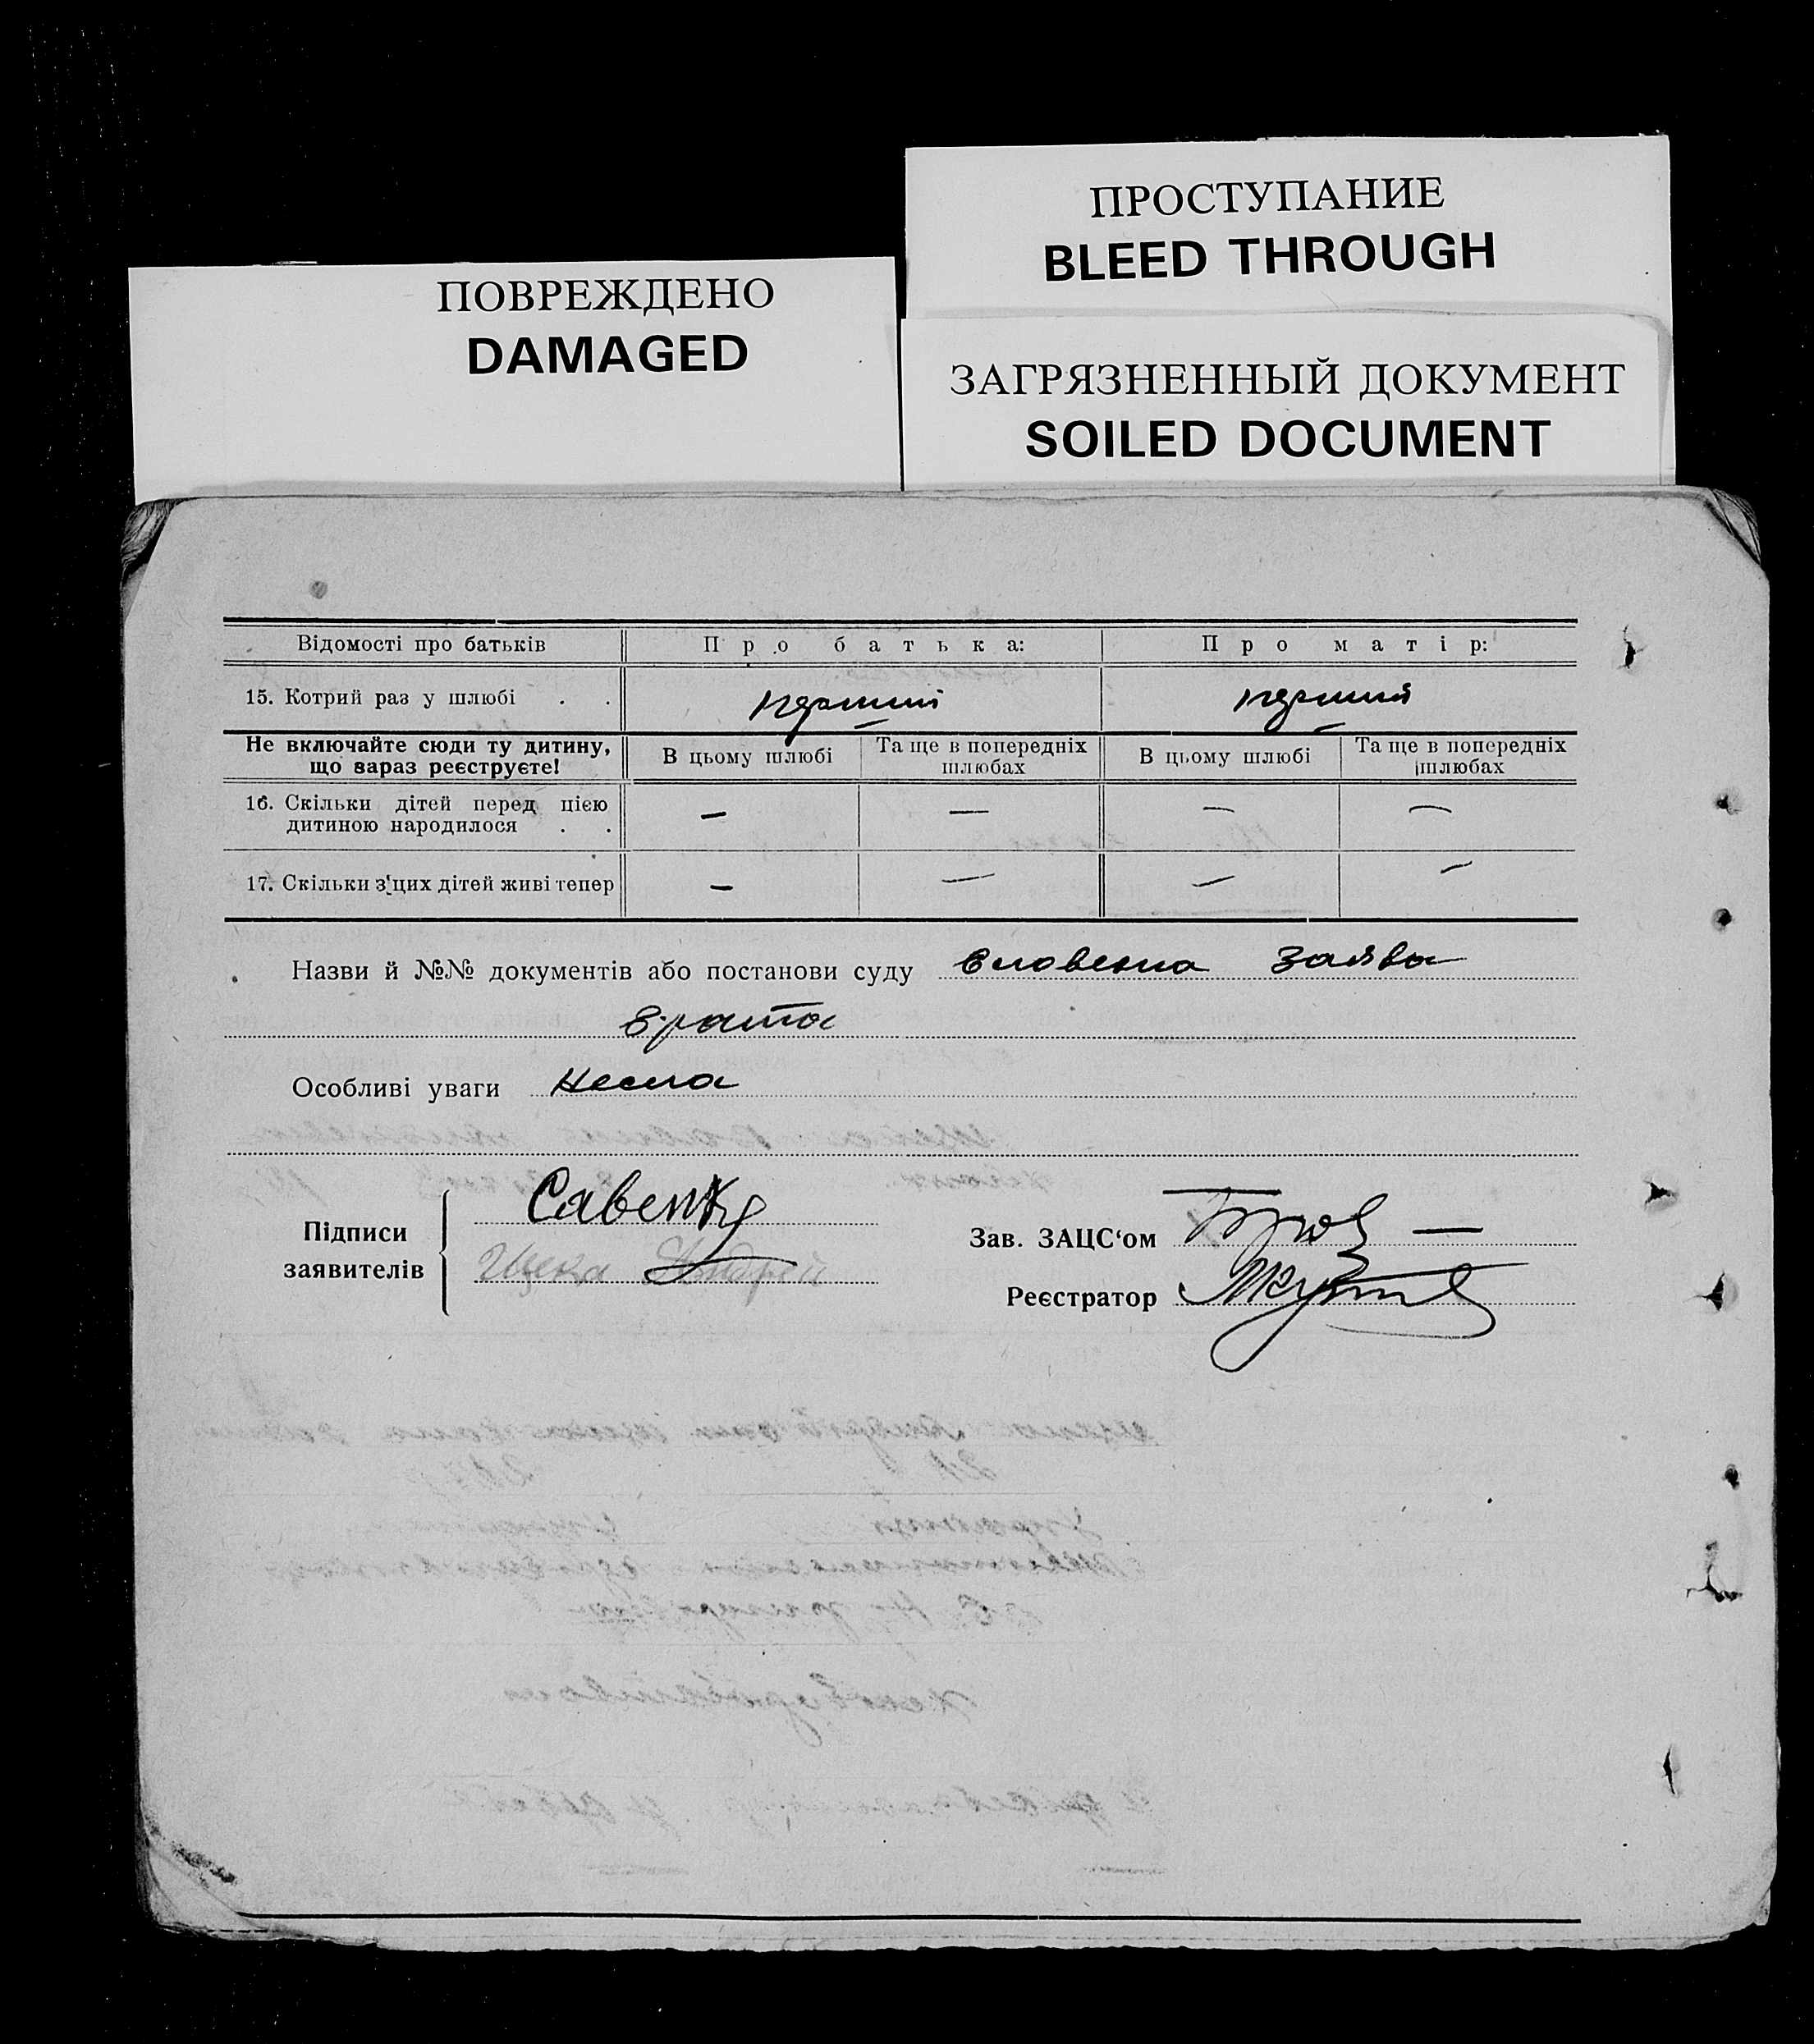 ПРОСТУПАНИЕ
BLEED THROUGH
ПОВРЕЖДЕНО
DAMAGED
ЗАГРЯЗНЕННЫЙ ДОКУМЕНТ
SOILED DOCUMENT
Відомості про батьків Про батька: Про матір:
15. Котрий раз у шлюбі . . перший перший
Не включайте сюди ту дитину, що вараз реєструєте! В цьому шлюбі Та ще в попередніх шлюбах В цьому шлюбі Та ще в попередніх шлюбах
16. Скільки дітей перед цією дитиною народилося . . — — — —
17. Скільки з цих дітей живі тепер — — — —
Назви й №№ документів або постанови суду словесна заява
брата
Особливі уваги нема
Підписи заявителів
Савенко
Щека Андрей
Зав. ЗАЦС‘ом
Реєстратор